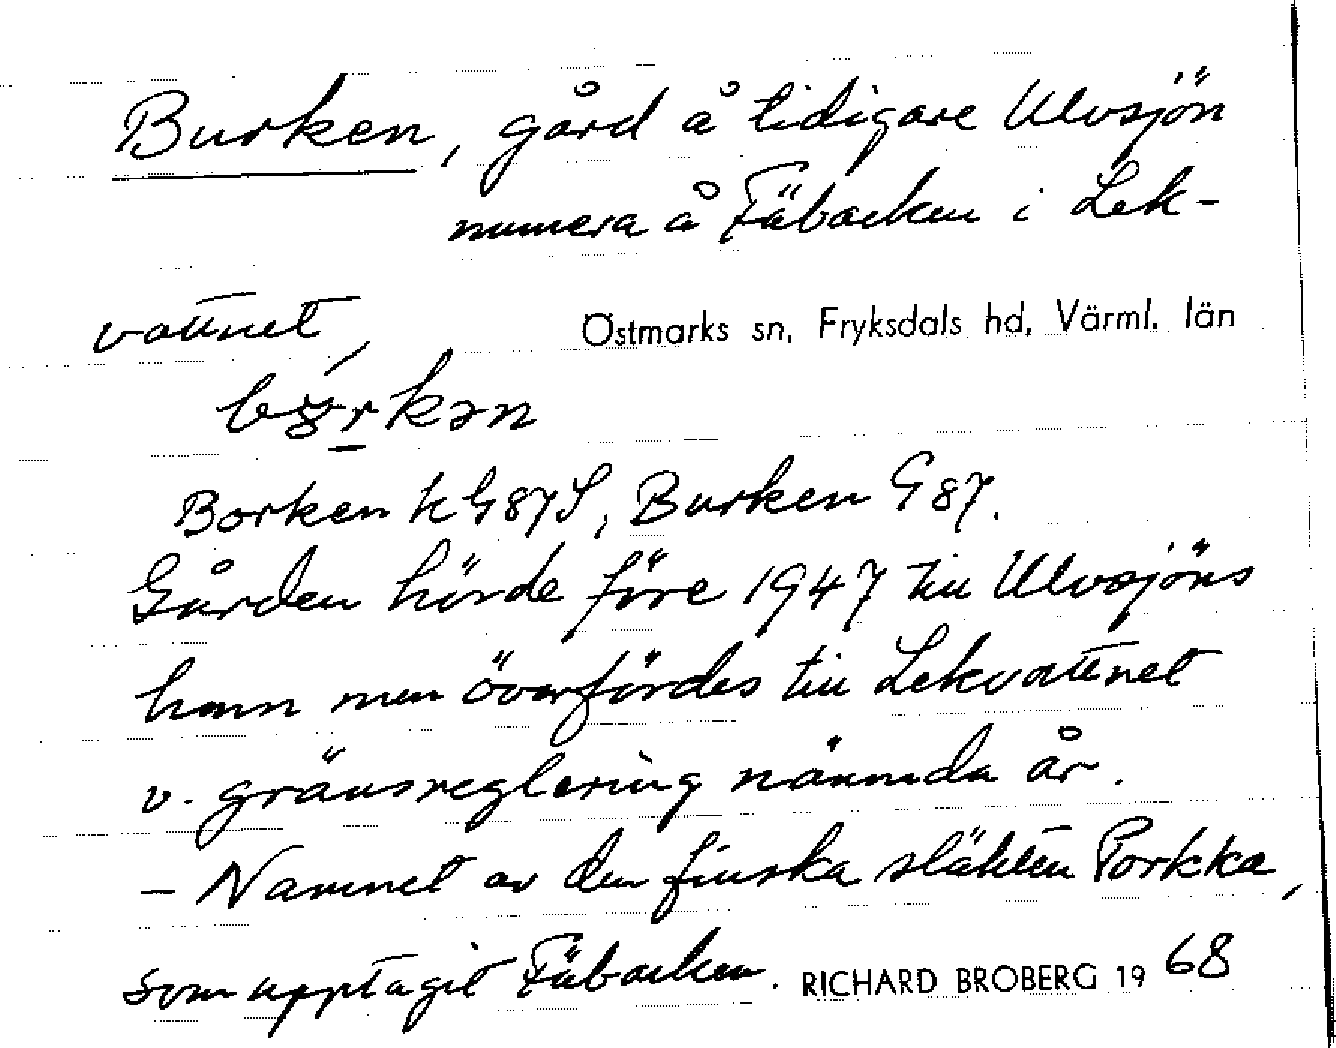 Burken, gård å tidigare Ulvsjön
numera å Fäbacken i Lek-
vattnet, Östmarks sn, Fryksdals hd, Värml. län
Borken k G87S, Burken G 87.
Gården hörde före 1947 till Ulvsjöns
hmn men överfördes till Lekvattnet
v. gränsreglering nämnda år.
– Namnet av den finska släkten Porkka,
som upptagit Fäbacken. RICHARD BROBERG 19 68